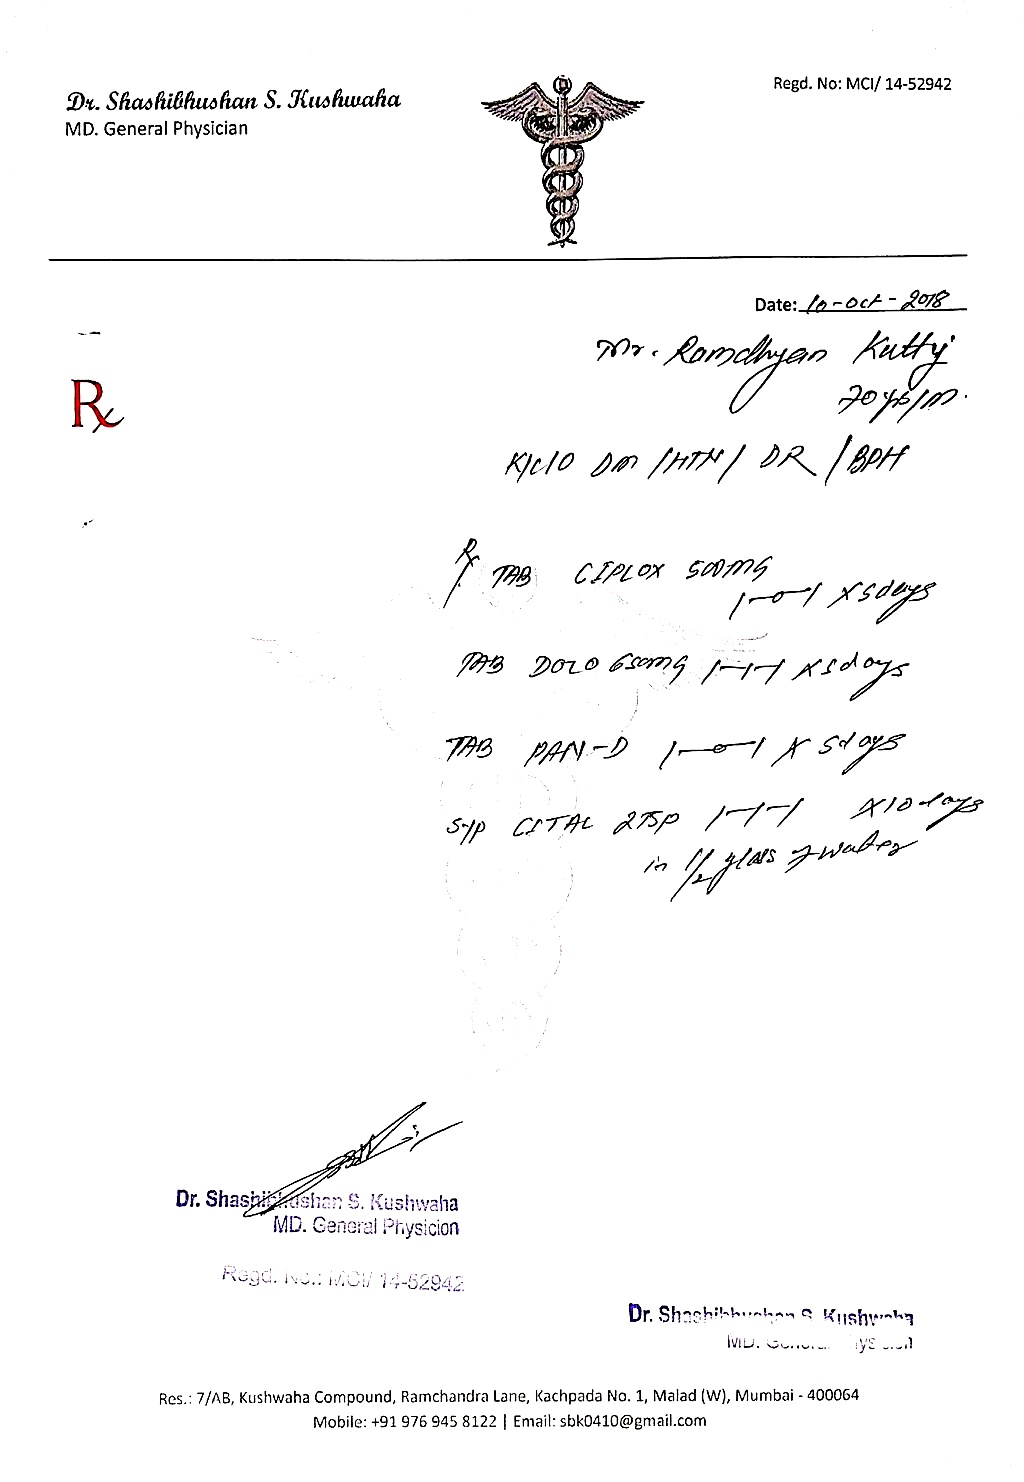 Dr. Shashibhushan S. Kushwaha
MD. General Physician
Regd. No: MCI/ 14-52942
Date: 10-Oct-2018
Mr. Ramdhyan Kutty
70 yrs/m.
Rx
K/C/O DM /HTN/ DR /BPH
Rx TAB CIPLOX 500MG
1-0-1 X 5days
TAB DOLO 650MG 1-1-1 X 5days
TAB PAN-D 1-0-1 X 5days
SYP CITAL 2TSP 1-1-1 X10days
in 1/2 glass of water
Dr. Shashibhushan S. Kushwaha
MD. General Physicion
Regd. No.: MCI/ 14-52942
Dr. Shashibhushan S. Kushwaha
MD. General Physicion
Res.: 7/AB, Kushwaha Compound, Ramchandra Lane, Kachpada No. 1, Malad (W), Mumbai - 400064
Mobile: +91 976 945 8122 | Email: sbk0410@gmail.com